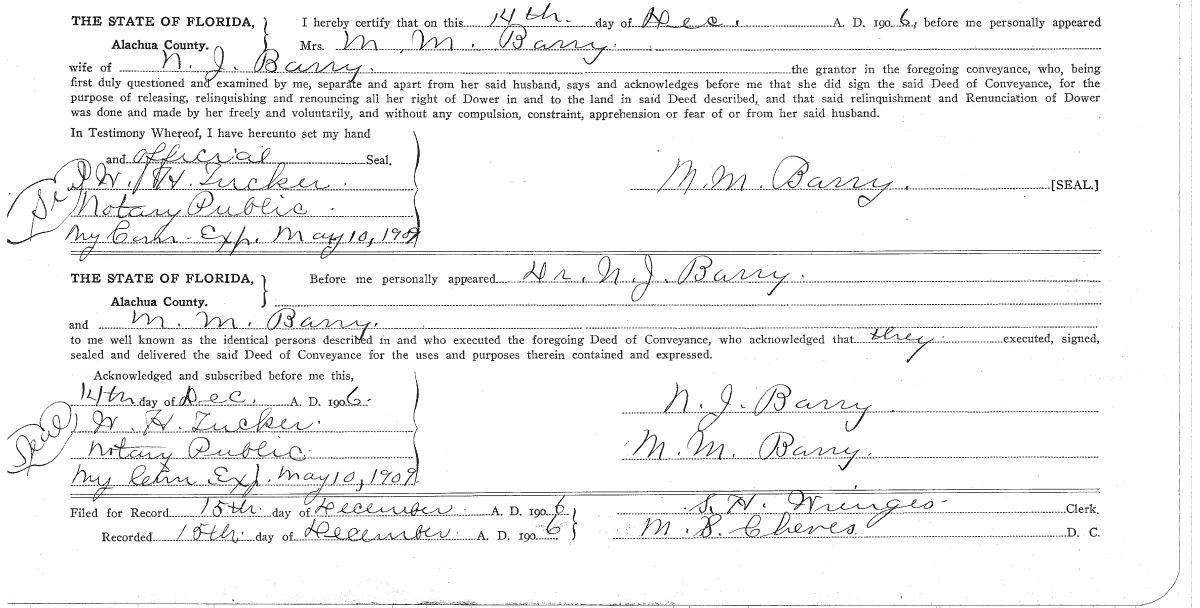 THE STATE OF FLORIDA, } I hereby certify that on this 14th. day of Dec. A. D. 190 6, before me personally appeared
Alachua County. Mrs. M. M. Barry.
wife of N. J. Barry. the grantor in the foregoing conveyance, who, being
first duly questioned and examined by me, separate and apart from her said husband, says and acknowledges before me that she did sign the said Deed of Conveyance, for the
purpose of releasing, relinquishing and renouncing all her right of Dower in and to the land in said Deed described, and that said relinquishment and Renunciation of Dower
was done and made by her freely and voluntarily, and without any compulsion, constraint, apprehension or fear of or from her said husband.
In Testimony Whereof, I have hereunto set my hand
and official Seal.
Seal W. H. Tucker. M. M. Barry. [SEAL.]
Notary Public.
My Com. Exp. May 10, 1909
THE STATE OF FLORIDA, } Before me personally appeared Dr. N. J. Barry.
Alachua County.
and M. M. Barry.
to me well known as the identical persons described in and who executed the foregoing Deed of Conveyance, who acknowledged that they executed, signed,
sealed and delivered the said Deed of Conveyance for the uses and purposes therein contained and expressed.
Acknowledged and subscribed before me this,
14th day of Dec. A. D. 190 6. N. J. Barry
Seal W. H. Tucker.
Notary Public. M. M. Barry.
My Com Exp. May 10, 1909.
Filed for Record 15th. day of December. A. D. 190 6 } S. H. Wienges Clerk.
Recorded 15th. day of December. A. D. 190 6 M. S. Cheves D. C.